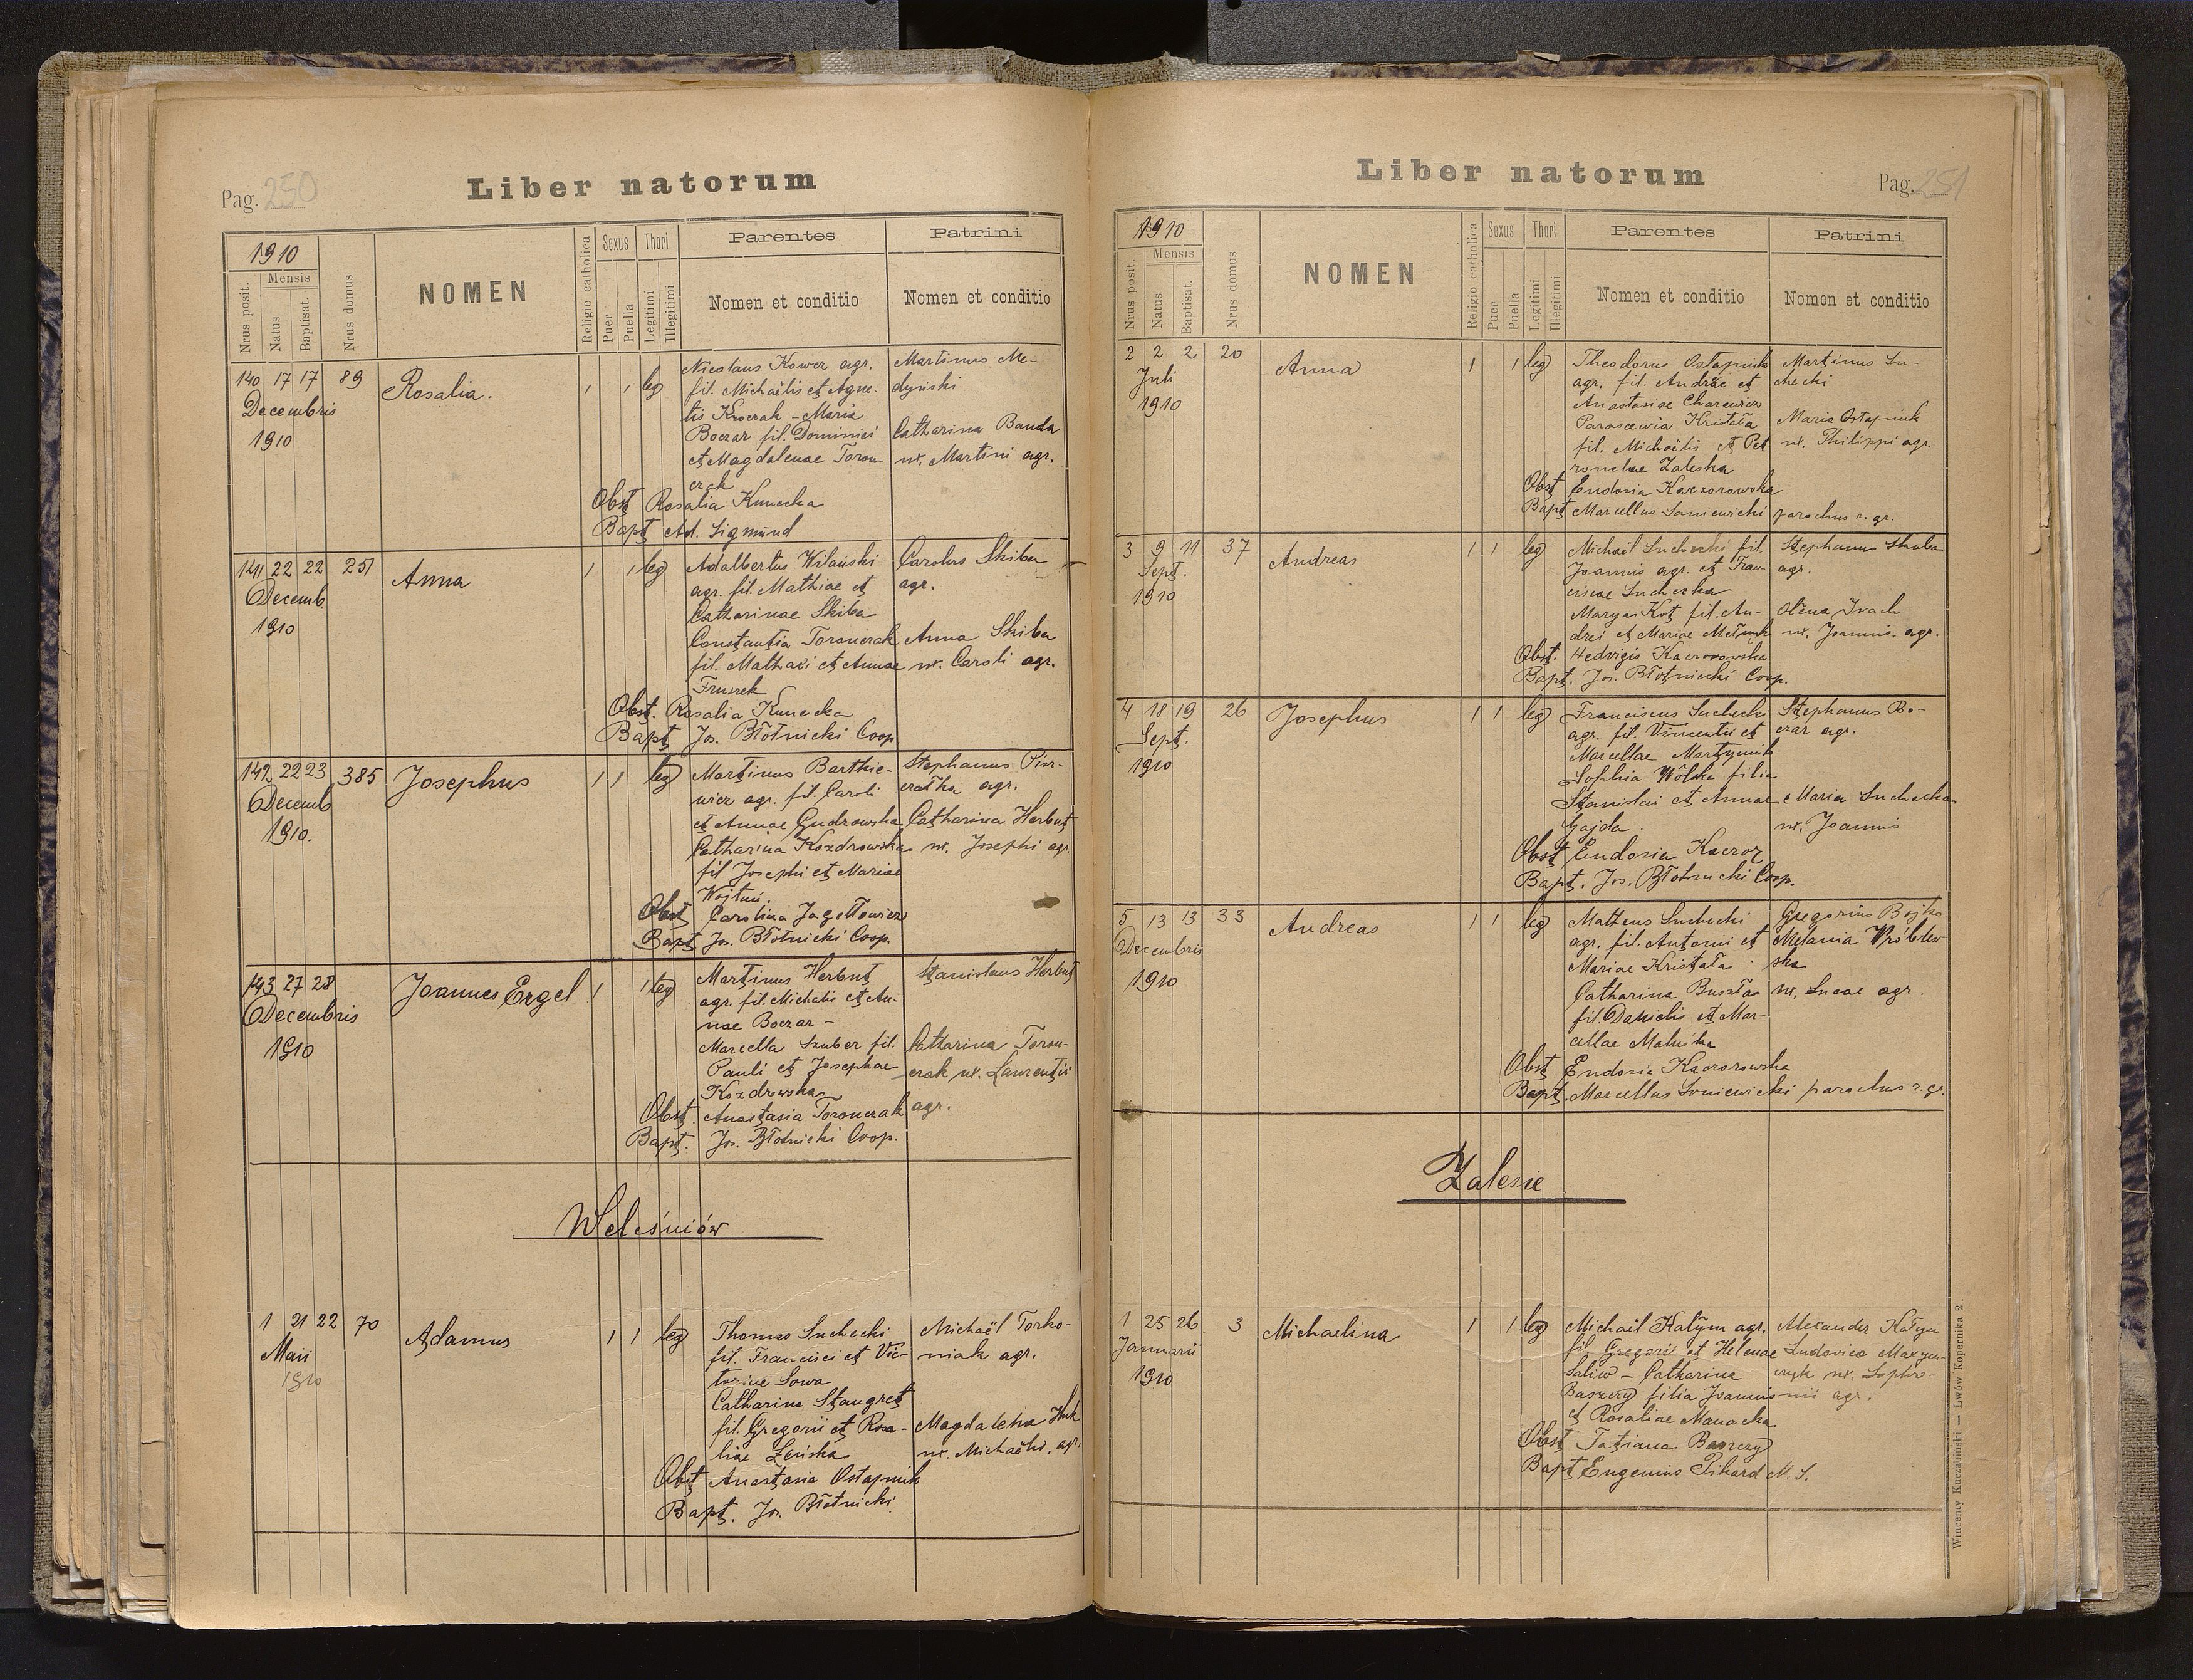 Pag. 250
Liber natorum
1910
Nrus posit.
Mensis
Natus
Baptisat.
Nrus domus
NOMEN
Religio catholica
Sexus
Puer
Puella
Thori
Legitimi
Illegitimi
Parentes
Nomen et conditio
Patrini
Nomen et conditio
140 17 17 89
Decembris
1910
Rosalia.
1 1 leg
Nicolaus Kower agr.
fil. Michaëlis et Agne-
tis Kroczak - Maria
Boczar fil. Dominici
et Magdalenae Toron-
czak
Martinus Me-
dyński
Catharina Banda
ux. Martini agr.
Obst Rosalia Kunecka
Bapt Ad. Sigmund
141 22 22 251
Decemb
1910
Anna
1 1 leg
Adalbertus Wilański
agr. fil. Mathiae et
Catharinae Skiba
Constantia Toronczak
fil. Mathaei et Annae
Fruszek
Carolus Skiba
agr.
Anna Skiba
ux. Caroli agr.
Obst. Rosalia Kunecka
Bapt Jos. Błotnicki Coop
142 22 23 385
Decemb
1910.
Josephus
1 1 leg
Martinus Barthie-
wicz agr. fil. Caroli
et Annae Gudrowska
Catharina Kozdrowska
fil Josephi et Mariae
Wojtuń.
Stephanus Pior-
czatka agr.
Catharina Herbut
ux. Josephi agr.
Obst Carolina Jagełłowicz
Bapt Jos. Błotnicki Coop.
143 27 28
Decembris
1910
Joannes Ergel
1 1 leg
Martinus Herbut
agr. fil. Michalis et An-
nae Boczar -
Marcella Szuber fil.
Pauli et Josephae
Kozdrowska
Stanislaus Herbut
Catharina Toron-
czak ux. Laurentii
agr.
Obst. Anastasia Toronczak
Bapt. Jos. Błotnicki Coop.
Weleśniów
1 21 22 70
Maii
1910
Adamus
1 1 leg
Thomas Suchecki
fil. Francisci et Vic-
toriae Sowa
Catharina Stangret
fil. Gregorii et Rosa-
liae Zeńska
Michaël Torko-
niak agr.
Magdalena Huk
ux. Michaëlis, agr.
Obst Anastasia Ostapnik
Bapt. Jos. Błotnicki
Liber natorum
Pag. 251
1910
Nrus posit.
Mensis
Natus
Baptisat.
Nrus domus
NOMEN
Religio catholica
Sexus
Puer
Puella
Thori
Legitimi
Illegitimi
Parentes
Nomen et conditio
Patrini
Nomen et conditio
2 2 2 20
Juli
1910
Anna
1 1 leg
Theodorus Ostapiuk
agr. fil. Andrae et
Anastasiae Charewicz
Parascewia Kristała
fil. Michaëlis et Pet
ronelae Zaleska
Martinus Su-
checki
Maria Ostapiuk
ux. Philippi agr.
Obst Eudosia Kaczorowska
Bapt Marcellus Soniewicki parochus r. gr.
3 9 11 37
Sept.
1910
Andreas
1 1 leg
Michaël Suchecki fil.
Joannis agr. et Fran-
ciscae Suchecka
Marya Kot fil. An-
drei et Mariae Melnyk
Stephanus Skuba
agr.
Olena Ivach
ux. Joannis. agr.
Obst. Hedvigis Kaczorowska
Bapt. Jos. Błotnicki Coop.
4 18 19 26
Sept.
1910
Josephus
1 1 leg
Franciscus Suchecki
agr. fil. Vincentii et
Marcellae Martyniuk
Sophia Wolska filia
Stanislai et Annae
Gajda.
Stephanus Bo-
czar agr.
Maria Suchecka
ux. Joannis
Obst Eudosia Kaczor
Bapt. Jos. Błotnicki Coop.
5 13 13 33
Decembris
1910
Andreas
1 1 leg
Matheus Suchecki
agr. fil. Antonii et
Mariae Kristała
Catharina Buszta
fil. Danielis et Mar-
cellae Malńska
Gregorius Bojko
Melania Wróblew
ska
ux. Lucae agr.
Obst Eudosia Kaczorowska
Bapt Marcellus Soniewicki parochus r. gr.
Zalesie
1 25 26 3
Januarii
1910
Michaelina
1 1 leg
Michaël Hałym agr.
fil. Gregorii et Helenae
Saliw - Catharina
Baszczy filia Joannis
et Rosaliae Manacka
Alexander Hałym
Ludovica Maxym-
czyk ux. Sophro-
nii agr.
Obst Tatiana Baszczy
Bapt Eugenius Pikard M. S.
Wincenty Kuczabiński — Lwów Kopernika 2.